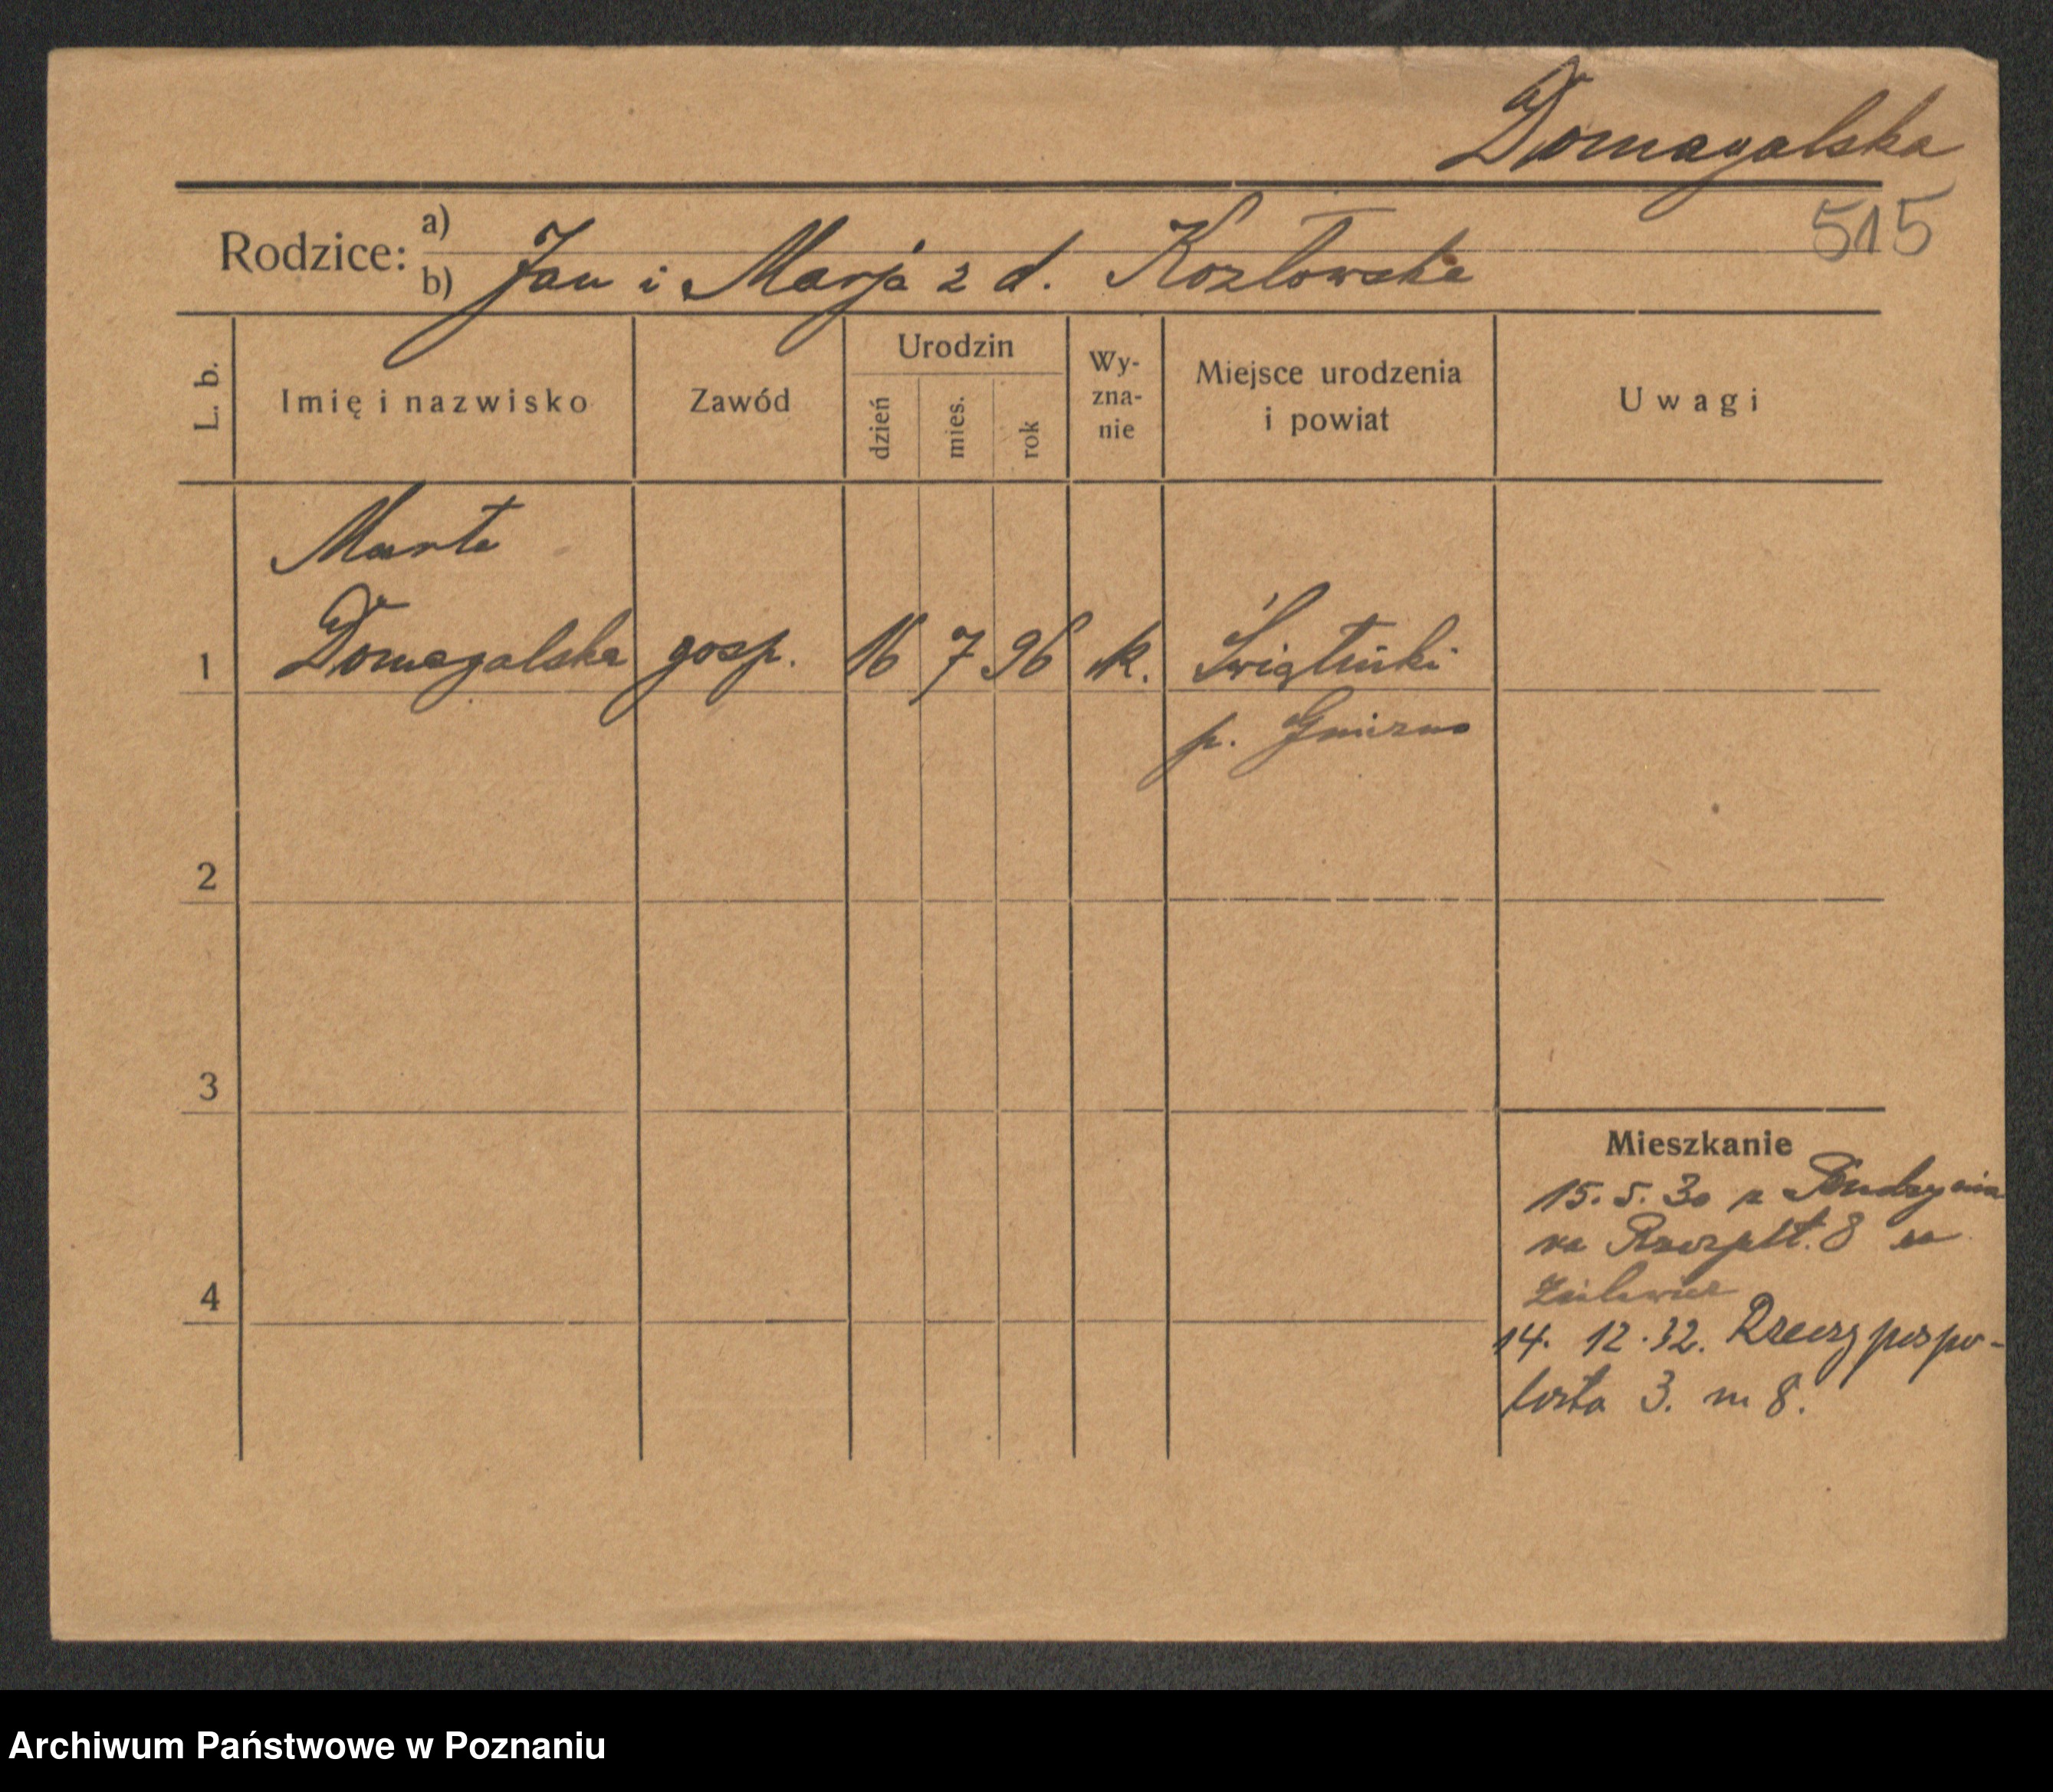 Domagalska
515
Rodzice: a)
b) Jan i Marja z d. Kozłowska
L. b.
Imię i nazwisko
Zawód
Urodzin
dzień
mies.
rok
Wy-
zna-
nie
Miejsce urodzenia
i powiat
Uwagi
Marta
1 Domagalska gosp. 16 7 96 k. Świątniki
p. Gniezno
2
3
4
Mieszkanie
15. 5. 30 z
na 8 u
14. 12. 32. Rzeczpospo-
lita 3. m 8.
Archiwum Państwowe w Poznaniu